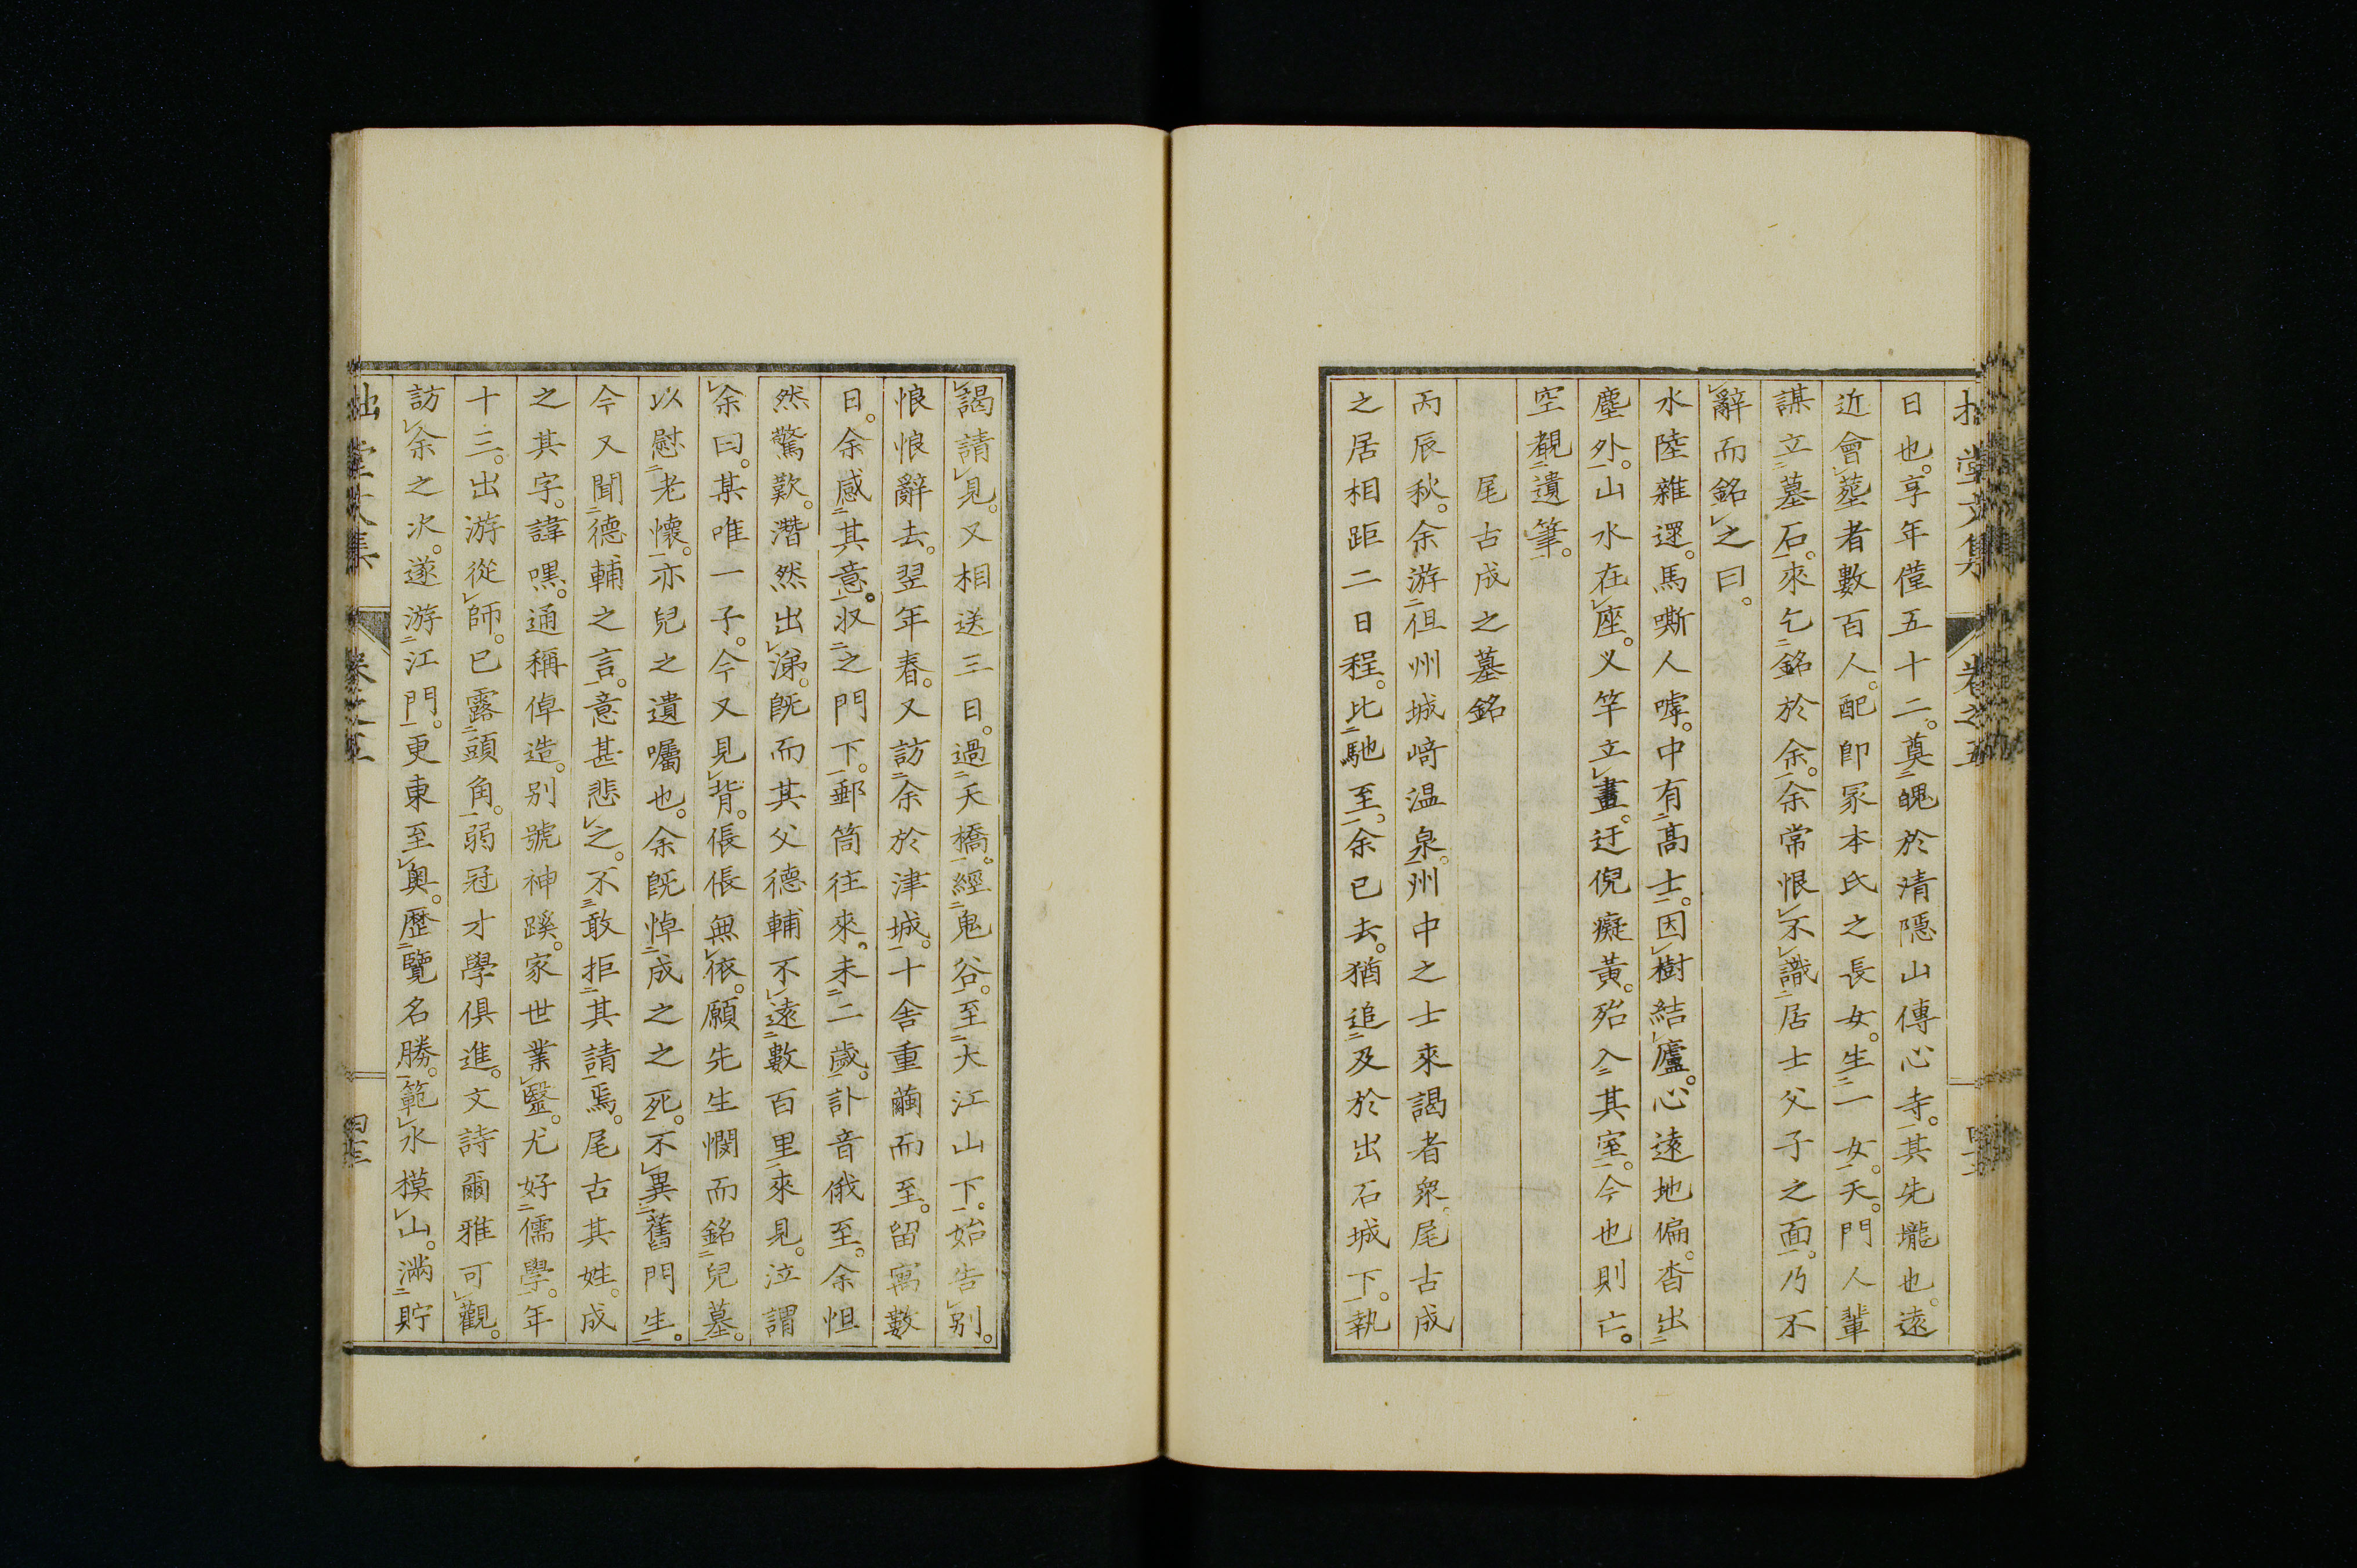 日也。享年僅五十二。奠魄於清隱山傳心寺。其先壠也。遠
近會葬者數百人。配卽冢本氏之長女。生一女。夭。門人輩
謀立墓石。來乞銘於余。余常恨不識居士父子之面。乃不
辭而銘之曰。
水陸雜遝。馬嘶人嘑。中有高士。因樹結廬。心遠地偏。杳出
塵外。山水在座。乂竿立畫。迂倪癡黃。殆仝其室。今也則亡。
空覩遺筆。
尾古成之墓銘
丙辰秋。余游但州城崎温泉。州中之士來謁者衆。尾古成
之居相距二日程。比馳至。余已去。猶追及於出石城下。執
謁請見。又相送三日。過天橋。經鬼谷。至大江山下。始告別。
悢悢辭去。翌年春。又訪余於津城。十舍重繭而至。留寓數
日。余感其意。收之門下。郵筒往來。未二歲。訃音俄至。余怛
然驚歎。潸然出涕。旣而其父德輔不遠數百里來見。泣謂
余曰。某唯一子。今又見背。倀倀無依。願先生憫而銘兒墓。
以慰老懷。亦兒之遺囑也。余旣悼成之之死。不異舊門生。
今又聞德輔之言。意甚悲之。不敢拒其請焉。尾古其姓。成
之其字。諱嘿。通稱倬造。別號神蹊。家世業毉。尤好儒學。年
十三。出游從師。已露頭角。弱冠才學俱進。文詩爾雅可觀。
訪余之次。遂游江門。更東至奥。歷覽名勝。範水模山。滿貯
拙堂文集 卷之五